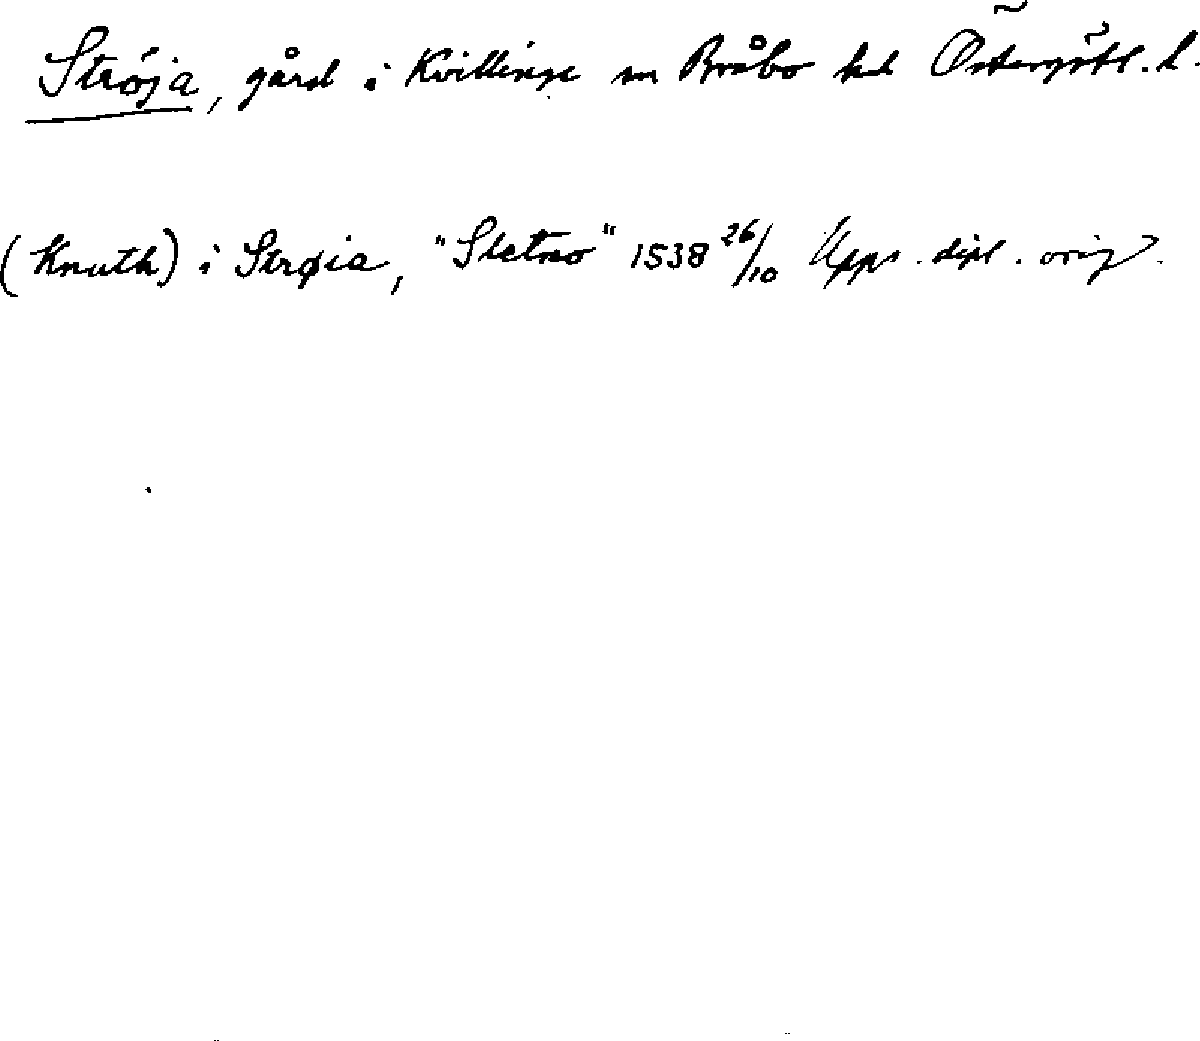 Ströja, gård i Kvillinge sn Bråbo hd Östergötl. l.
(Knuth) i Strøia, "Sletmo" 1538 26/10 Upps. dipl. orig.